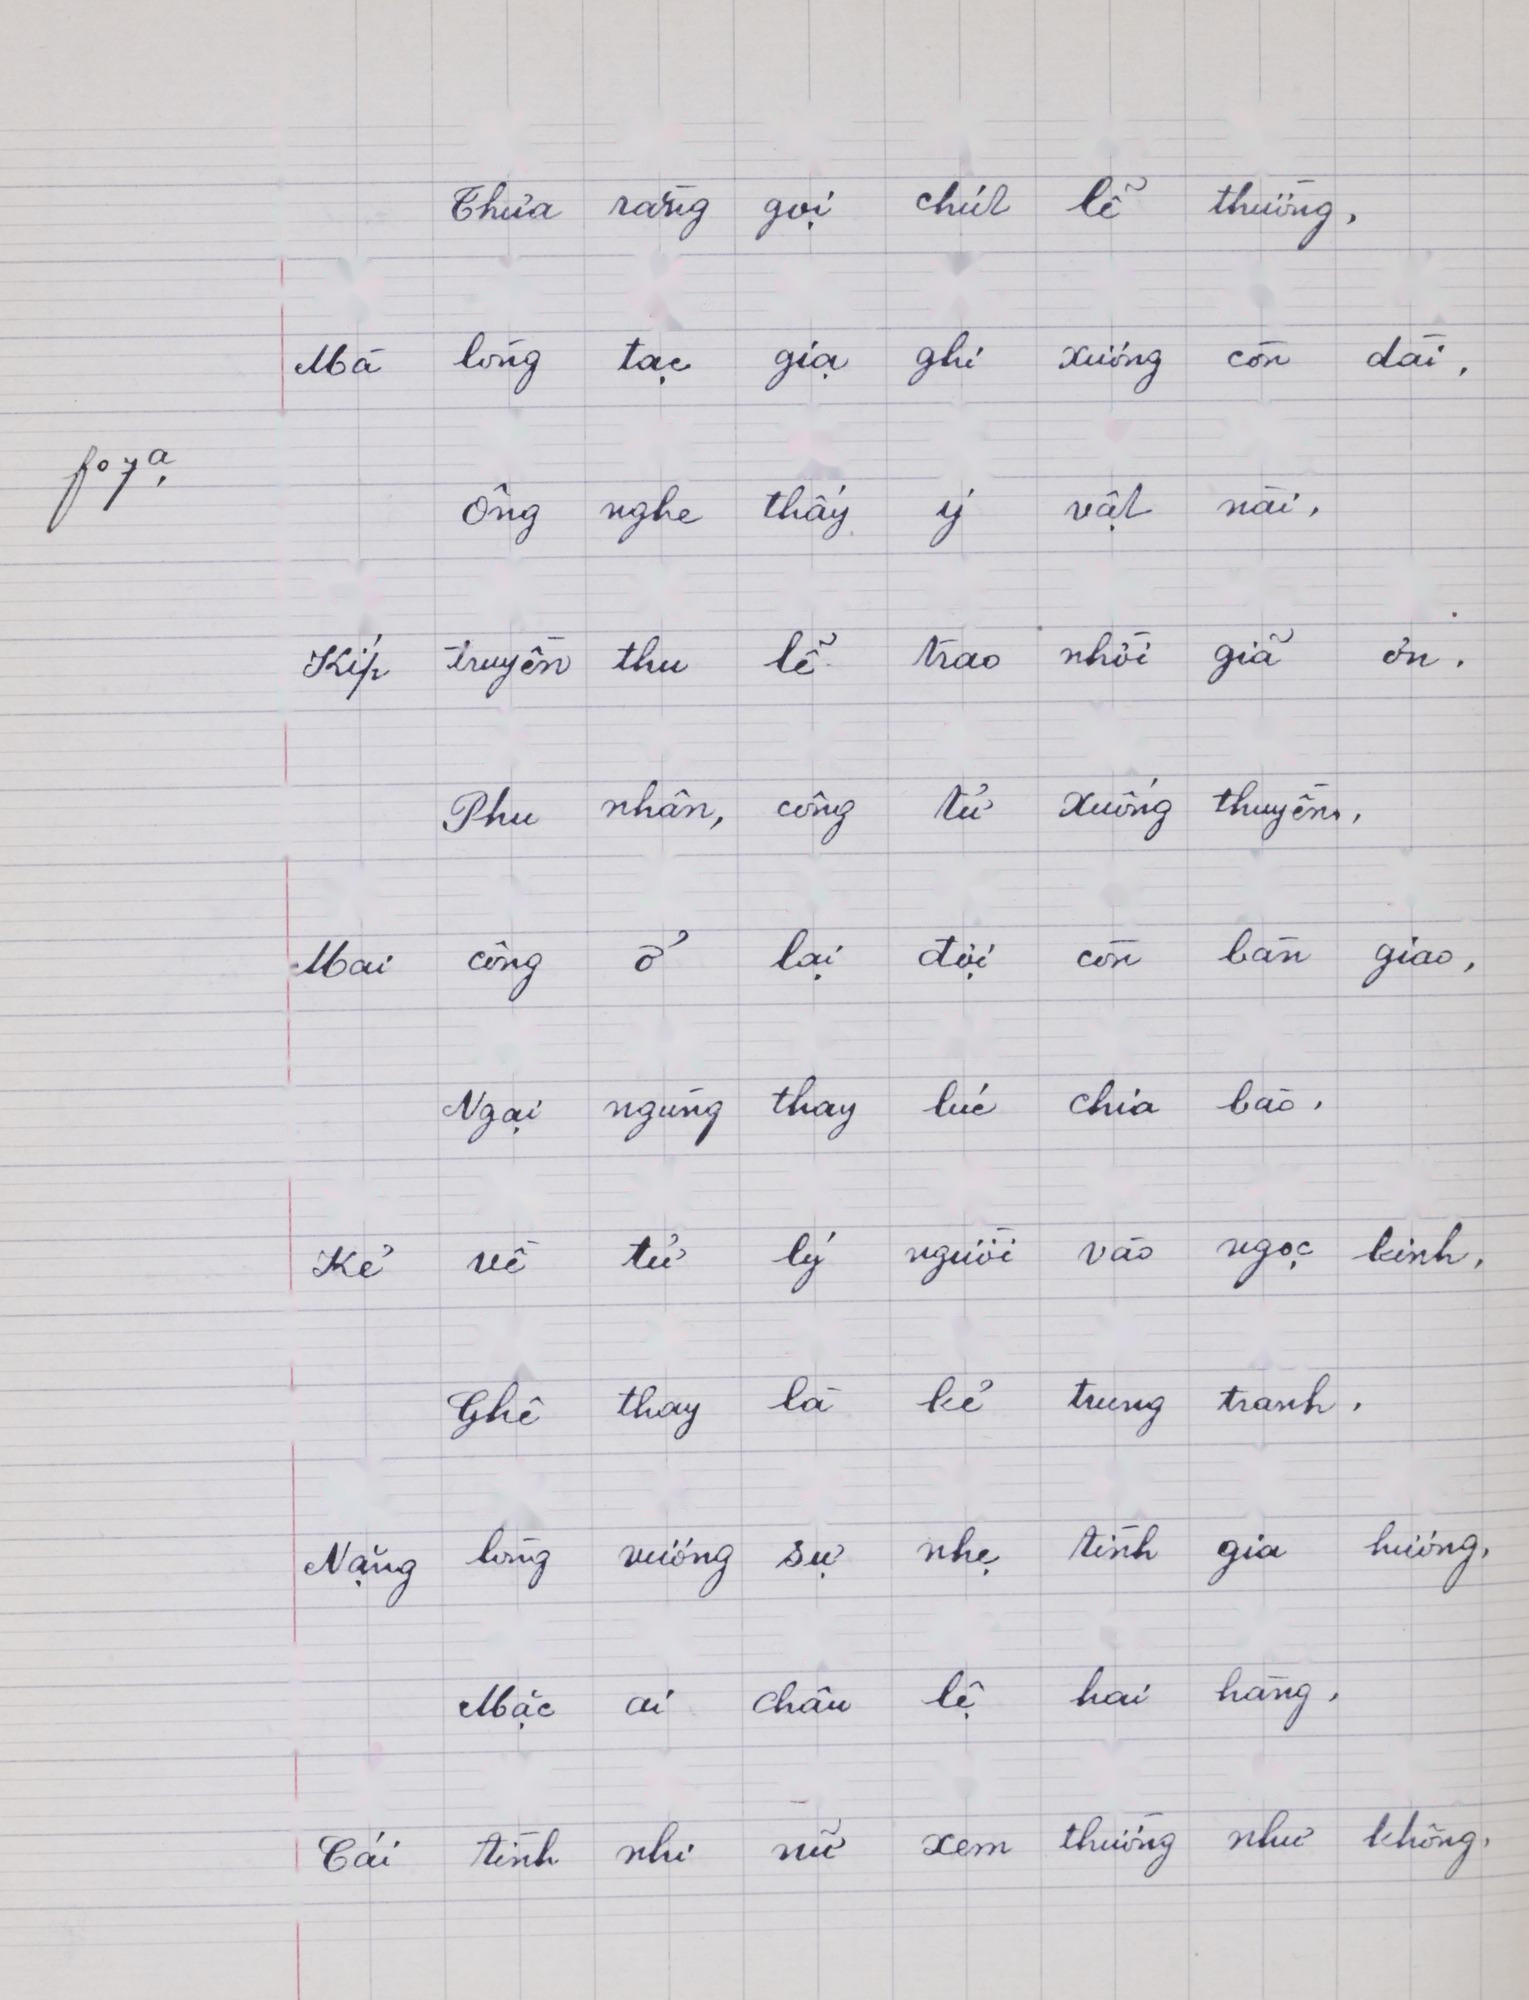 Thưa rằng gọi chút lễ thường,
Mà lòng tạc giạ ghi xương còn dài,
fo 7a
Ông nghe thấy ý vật nài,
Kíp truyền thu lễ trao nhời giã ơn.
Phu nhân, công tử xuống thuyền,
Mai công ở lại đợi còn bàn giao,
Ngại ngùng thay lúc chia bào,
Kẻ về tử lý người vào ngọc kinh,
Ghê thay là kẻ trung tranh,
Nặng lòng vương sự nhẹ tình gia hương,
Mặc ai châu lệ hai hàng,
Cái tình nhi nữ xem thường như không,